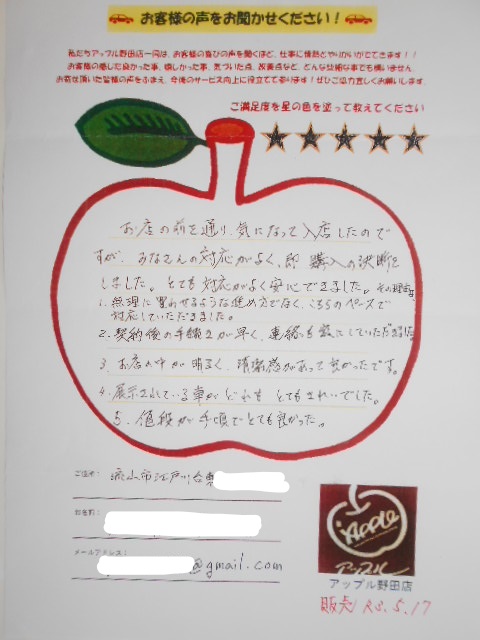 お客様の声をお聞かせください！
私たちアップル野田店一同は、お客様の喜びの声を聞くほど、仕事に情熱とやりがいがでてきます！！
お客様の感じた良かった事、嬉しかった事、気づいた点、改善点など、どんな些細な事でも構いません。
お寄せ頂いた皆様の声をふまえ、今後のサービス向上に役立てて参ります！ぜひご協力宜しくお願いします。
ご満足度を星の色を塗って教えてください
お店の前を通り、気になって入店したので
すが、みなさんの対応がよく、即購入の決断を
しました。とても対応がよく安心できました。その理由は、
1. 無理に買わせるような進め方でなく、こちらのペースで
対応していただきました。
2. 契約後の手続きが早く、連絡も密にしていただきました。
3. お店の中が明るく、清潔感があって良かったです。
4. 展示されている車がどれもとてもきれいでした。
5. 値段が手頃でとても良かった。
ご住所： 流山市江戸川台東
お名前：
メールアドレス： @gmail.com
Apple
アップル
アップル野田店
販売 R3.5.17